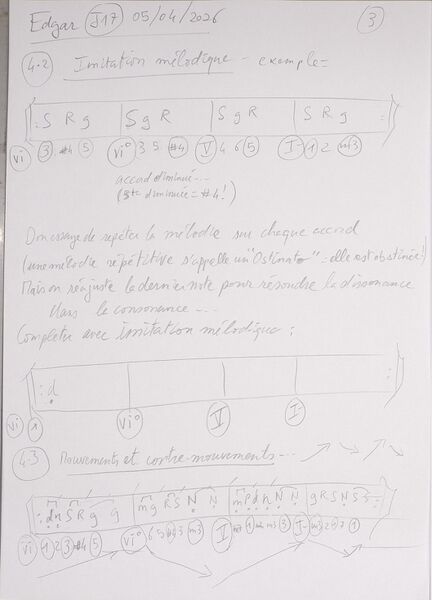 Edgar J17 05/04/2026 3
4.2 Imitation mélodique - exemple =
: S R g | S g R | S g R | S R g :
vi 3 #4 5 vi° 3 5 #4 V 4 6 5 I- 1 2 m3
accord diminué...
(5te diminuée = #4!)
Don essaye de répéter la mélodie sur chaque accord
(une mélodie répétitive s'appelle un "Ostinato" = elle est obstinée!)
Mais on réajuste la dernière note pour résoudre la dissonance
dans le consonance ...
Compléter avec imitation mélodique :
: d
vi 1 vi° V I-
4.3 Mouvements et contre-mouvements...
: d n S R g g | m g R S N N | m p d n N N | g R S N S S :
vi 1 2 3 #4 5 vi° 6 5 3 m3 V 1 3 I- m3 2 1 7 1